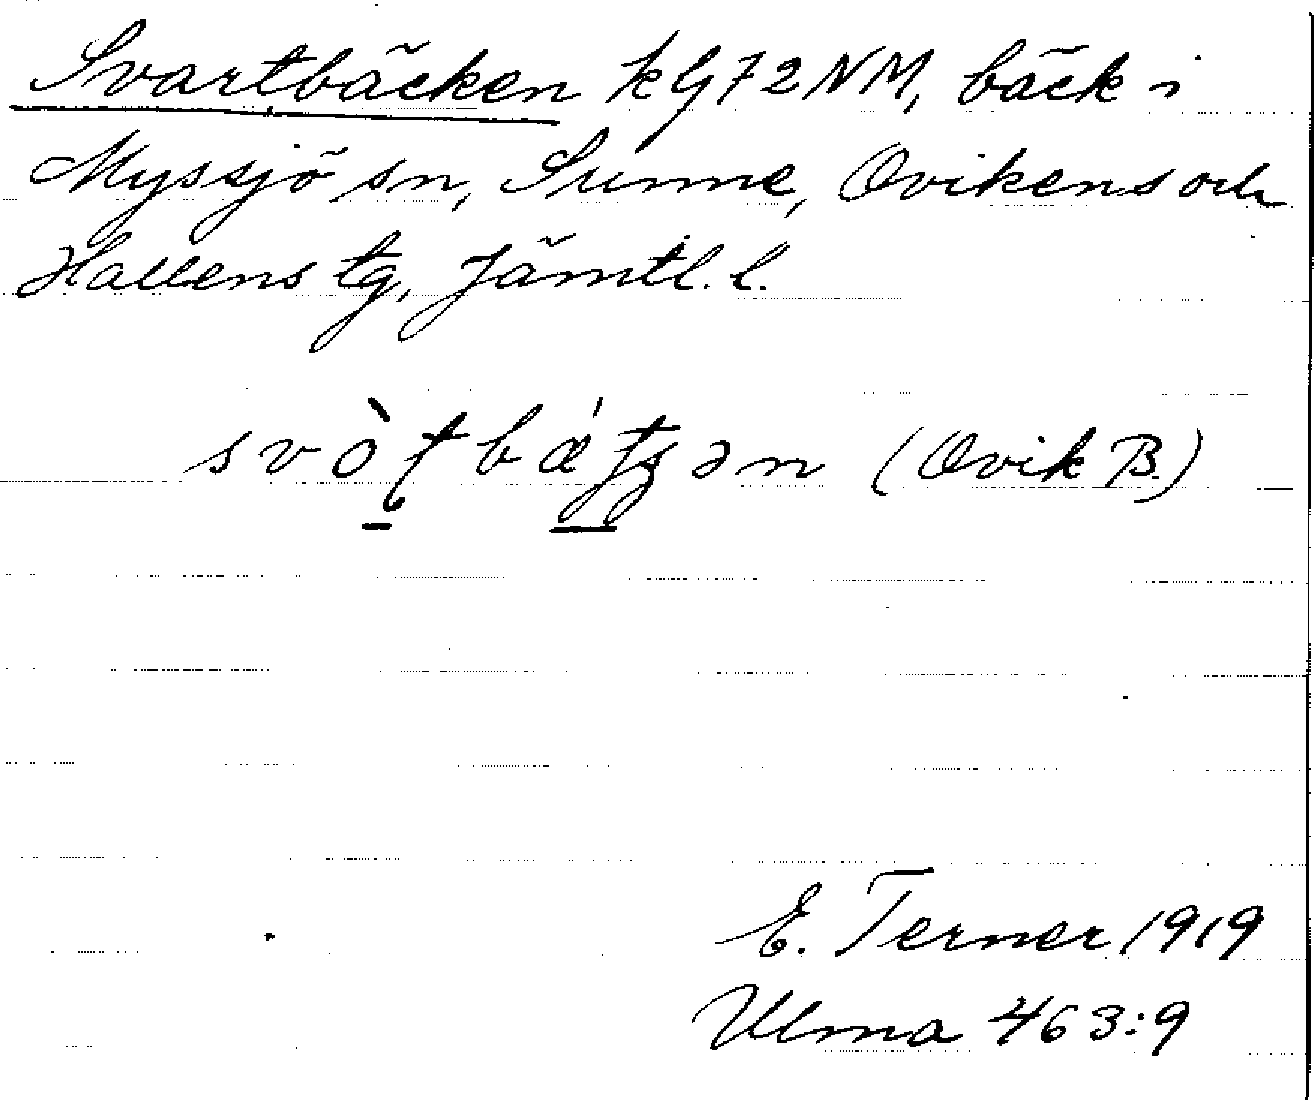 Svartbäcken kG72NM, bäck i
Myssjö sn, Sunne, Ovikens och
Hallens tg, Jämtl. l.
(Ovik B.)
E. Terner 1919
Ulma 463:9